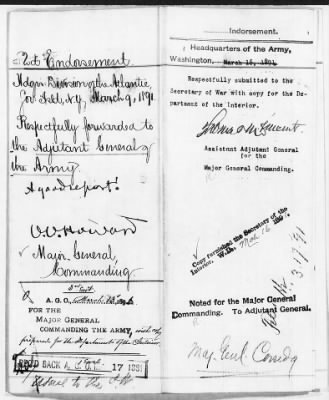 2d Endorsement
Hdqrs Division of the Atlantic,
Gov. Isld. N.Y. March 9, 1891.
Respectfully forwarded to
the Adjutant General of
the Army.
A good report!
O.O. Howard
Major General,
Commanding
3d Endt.
A. G. O., March
FOR THE
MAJOR GENERAL
COMMANDING THE ARMY, with copy
prepared for the Department of the Interior
REC'D BACK A. G. O. 17 1891
Indorsement.
Headquarters of the Army,
Washington, March 16, 1891.
Respectfully submitted to the
Secretary of War with copy for the De-
partment of the Interior.
Assistant Adjutant General
for the
Major General Commanding.
Copy furnished the Secretary of the
Interior, W.D., Mch 16 1891
Noted for the Major General
Commanding. To Adjutant General.
3/17/91
Maj. Genl. Comdg